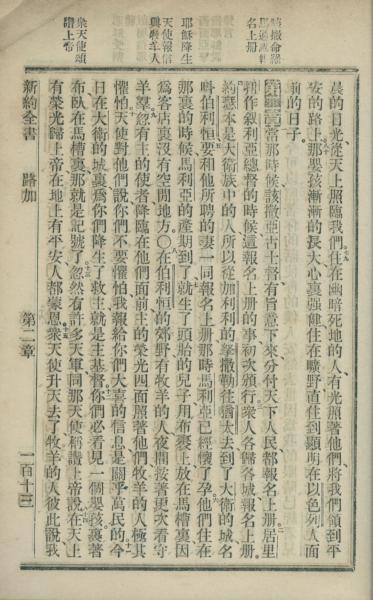 該撒命羅
馬通國報
名上册
耶穌降生
天使報信
與牧羊人
衆天使頌
讚上帝
晨的日光從天上照臨我們住在幽暗死地的人有光照著他們將我們領到平
安的路上那嬰孩漸漸的長大心裏强健住在曠野直住到顯明在以色列人面
前的日子。
第二章當那時候該撒亞古士督有旨意下來分付天下人民都報名上册居里
扭作叙利亞總督的時候這報名上册的事初次頒行衆人各歸各城報名上册
約瑟本是大衛族中的人所以從加利利的拿撒勒往猶太去到了大衛的城名
叫伯利恒要和他所聘的妻一同報名上册那時馬利亞已經懷了孕他們住在
那裏的時候馬利亞的產期到了就生了頭胎的兒子用布裹上放在馬槽裏因
爲客店裏沒有空閒地方〇在伯利恒的郊野有牧羊的人夜間按著更次看守
羊羣忽有主的使者降臨在他們面前主的榮光四面照著他們牧羊的人極其
懼怕天使對他們說你們不要懼怕我報給你們大喜的信息是關乎萬民的今
日在大衛的城裏爲你們降生了救主就是主基督你們必看見一個嬰孩裹著
布臥在馬槽裏那就是記號了忽然有許多天軍同那天使稱讚上帝說在天上
有榮光歸上帝在地上有平安人都蒙恩衆天使升天去了牧羊的人彼此說我
新約全書 路加 第二章 一百十三